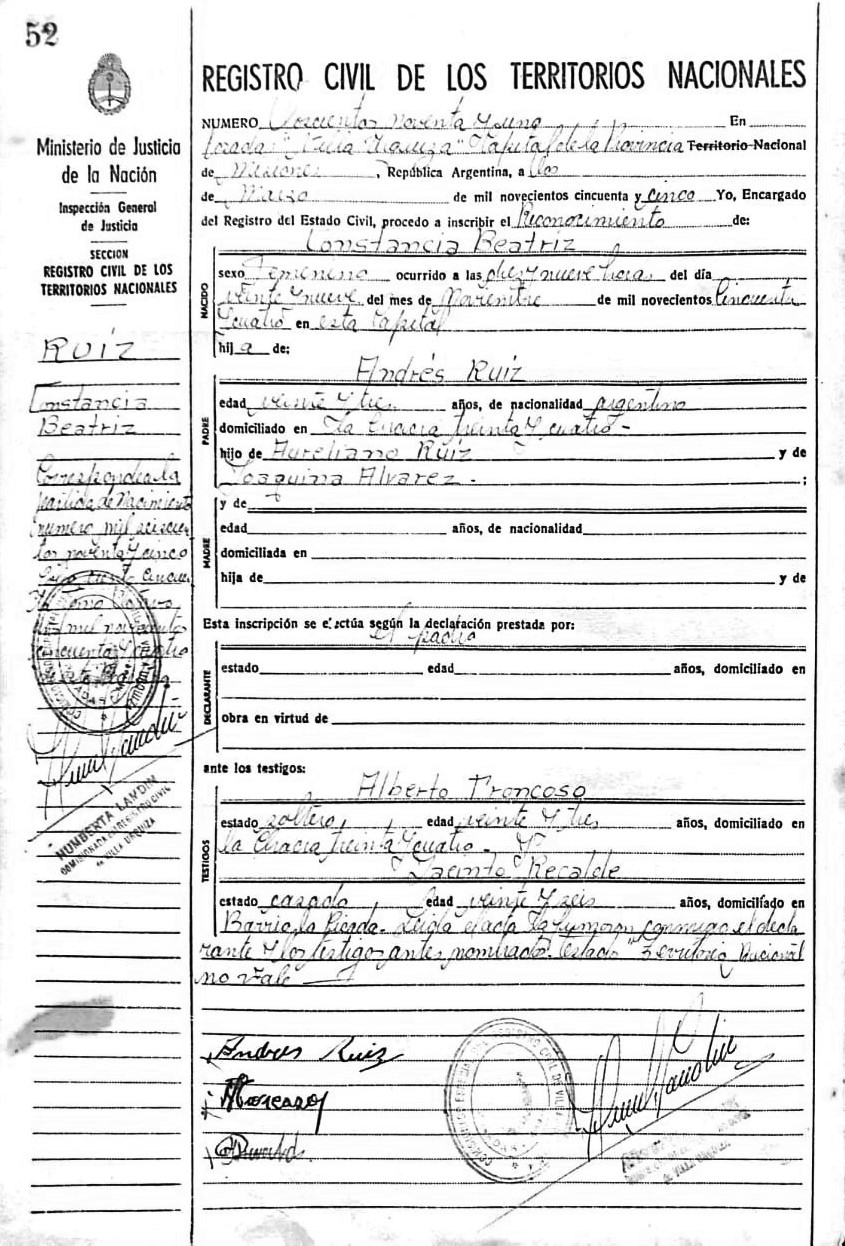 52
Ministerio de Justicia
de la Nación
Inspección General
de Justicia
SECCION
REGISTRO CIVIL DE LOS
TERRITORIOS NACIONALES
Ruíz
Constancia
Beatriz
Corresponde a la
partida de Nacimiento
numero mil seiscien
tos noventa y cinco
mil novecientos
cincuenta y cuatro
HUMBERTA LANDIN
COMISIONADA REGISTRO CIVIL
VILLA URQUIZA
REGISTRO CIVIL DE LOS TERRITORIOS NACIONALES
NUMERO Doscientos noventa y uno En
Posadas "Villa Urquiza" Capital de la Provincia Territorio Nacional
de Misiones, República Argentina, a dos
de Marzo de mil novecientos cincuenta y cinco Yo, Encargado
del Registro del Estado Civil, procedo a inscribir el Reconocimiento de:
Constancia Beatriz
NACIDO
sexo Femenino ocurrido a las diez y nueve horas del día
veinte y nueve del mes de Noviembre de mil novecientos cincuenta
y cuatro en esta Capital
hija de:
Andrés Ruíz
PADRE
edad veinte y tres años, de nacionalidad argentino
domiciliado en la Chacra treinta y cuatro -
hijo de Aureliano Ruíz y de
Joaquina Alvarez - ;
MADRE
y de
edad años, de nacionalidad
domiciliada en
hija de y de
Esta inscripción se efectúa según la declaración prestada por:
el padre
DECLARANTE
estado edad años, domiciliado en
obra en virtud de
ante los testigos:
Alberto Troncoso
TESTIGOS
estado soltero, edad veinte y tres años, domiciliado en
la Chacra treinta y cuatro - Y
Jacinto Recalde
estado casado, edad veinte y seis años, domiciliado en
Barrio la Picada - Leida el acta la firmaron conmigo el decla
rante y los testigos antes nombrado. Testado "Territorio Nacional
no vale
Andres Ruiz